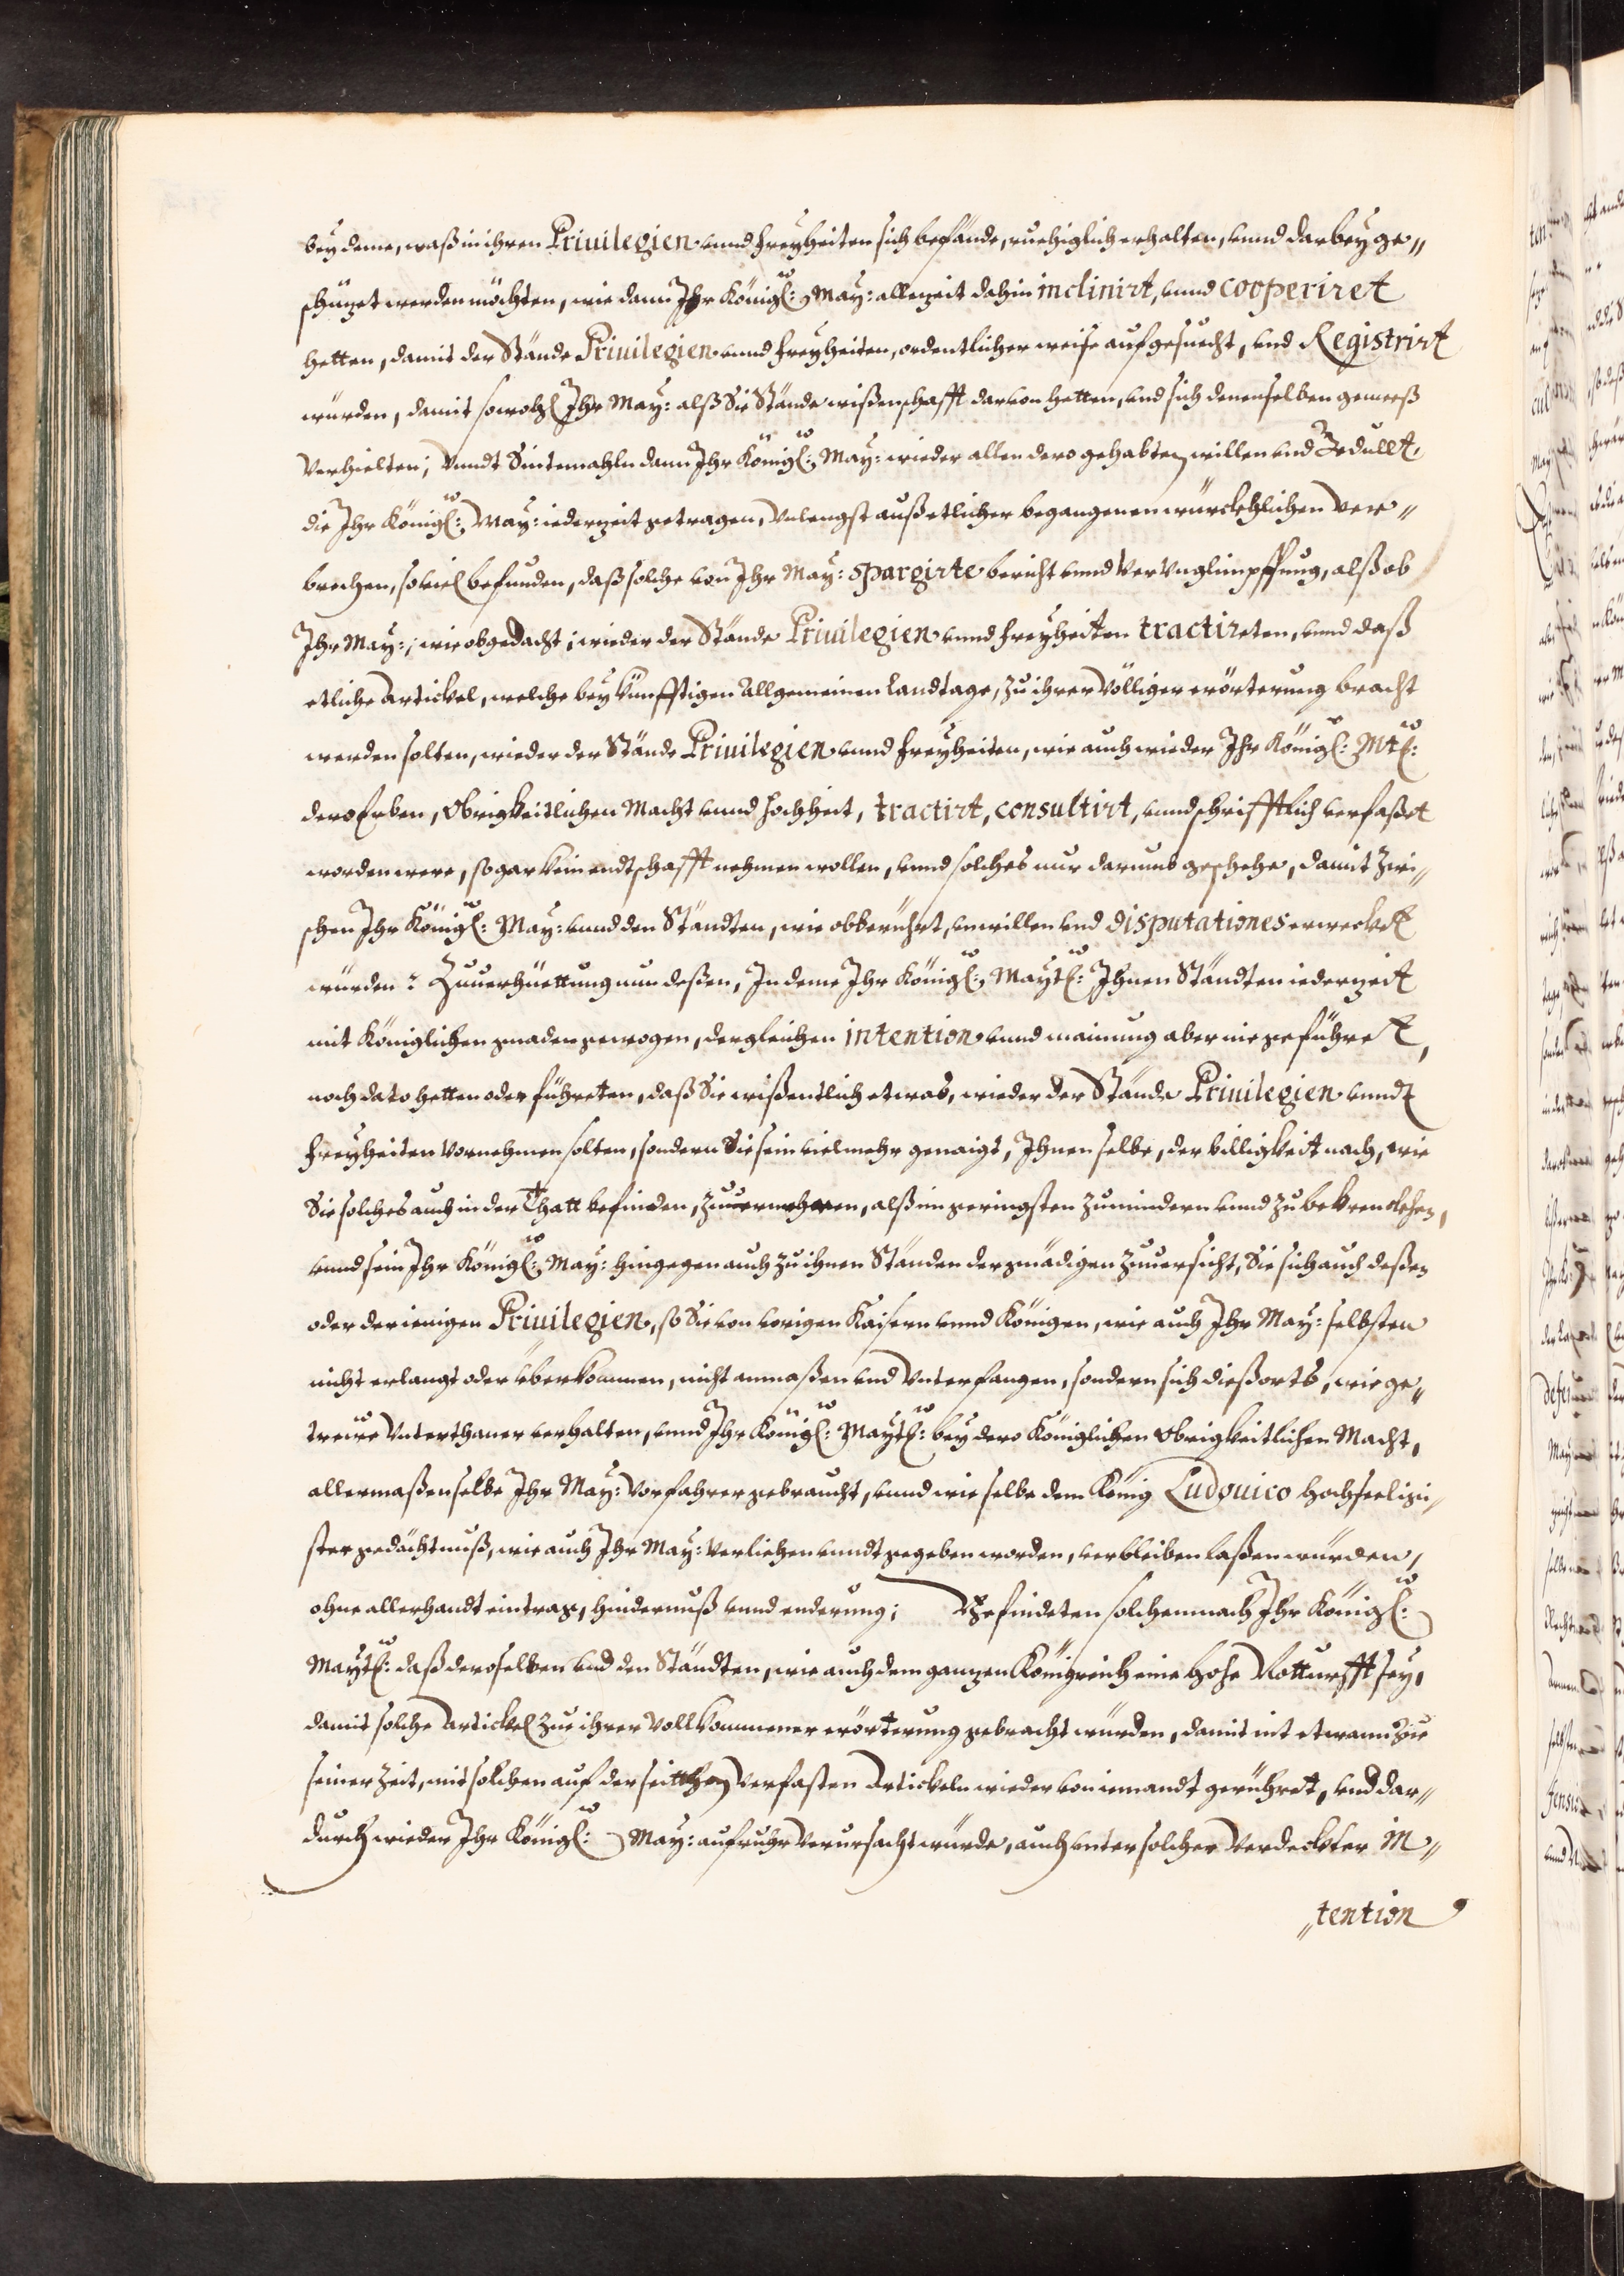 bey deme, waß in ihren Priuilegien vnnd freyheiten sich befände, ruehiglich erhalten, vnnd darbey ge„
schüzet werden möchten, wie dann Ihr Königl: May: allezeit dahin inclinirt, vnnd cooperiret
hetten, damit der Stände Priuilegien vnnd freyheiten, ordentlicher weise aufgesuecht, vnd Registrirt
würden, damit sowohl Ihr May: alß die Stände wißenschafft daruon hetten, vnd sich denenselben gemeeß
verhielten; Vnndt Sintemahln dann Ihr Königl: May: wieder allen dero gehabten willen vnd Gedullt,
die Ihr Königl: May: iederzeit getragen, Vnlengst auß etlicher begangenen würckhlichen Ver„
brechen, souiel befunden, daß solche von Ihr May: spargirte bericht vnnd Vervnglimpffung, alß ob
Ihr May:, wie obgedacht, wieder der Stände Priuilegien vnnd freyheiten tractireten, vnnd daß
etliche Artickel, welche bey künfftigen Allgemeinen Landtage, zu ihrer Völliger erörterung bracht
werden solten, wieder der Stände Priuilegien vnnd freyheiten, wie auch wieder Ihr Königl: Mtl:
dero Erben, Obrigkeitlichen Macht vnnd Hochheit, tractirt, consultirt, vnnd schrifftlich verfaßet
worden were, so gar kein endtschafft nehmen wollen, vnnd solches nur darumb geschehe, damit zwi„
schen Ihr Königl: May: vnnd den Ständten, wie obberührt, vnwillen vnd disputationes erweckel
würden: Zuuerhüettung nun deßen, In deme Ihr Königl: Maytl: Ihnen Ständten iederzeit
mit Königlichen gnaden gewogen, dergleichen intention vnnd mainung aber nie geführet,
noch dato hetten oder führeten, daß Sie wißentlich etwas, wieder der Stände Priuilegien vnndt
freyheiten vornehmen solten, sondern Sie sein vielmehr genaigt, Ihnen selbe, der billigkeit nach, wie
Sie solches auch in der Thatt befinden, zuuermehren, alß im geringsten zumindern vnnd zu bekrenckhen,
vnnd sein Ihr Königl: May: hingegen auch zu ihnen Ständen der gnädigen zuuersicht, Sie sich auch deßen
oder derienigen Priuilegien, so Sie von vorigen Kaisern vnnd Königen, wie auch Ihr May: selbsten
nicht erlangt oder überkommen, nicht anmaßen vnd Vnterfangen, sondern sich dießorts, wie ge„
treüe Vnterthaner verhalten, vnnd Ihr Königl: Maytl: bey dero Königlichen Obrigkeitlichen Macht,
allermaßen selbe Ihr May: Vorfahrer gebraucht, vnnd wie selbe dem König Ludouico Hochseeligi„
ster gedächtnuß, wie auch Ihr May: Verliehen vnndt gegeben worden, verbleiben laßen würden,
ohne allerhandt eintrag, hindernuß vnnd enderung; Befindeten solchemnach Ihr Königl:
Maytl: daß deroselben vnd den Ständten, wie auch dem ganzen Königreich eine hohe Notturfft sey,
damit solche Artickel zue ihrer vollkommener erörterung gebracht würden, damit nit etwann zue
seiner Zeit, mit solchen auf der seithen verfasten Artickeln wieder von iemandt gerühret, vnd dar„
durch wieder Ihr Königl: May: aufruhr verursacht würde, auch vnter solcher Verdeckter In„
„tention